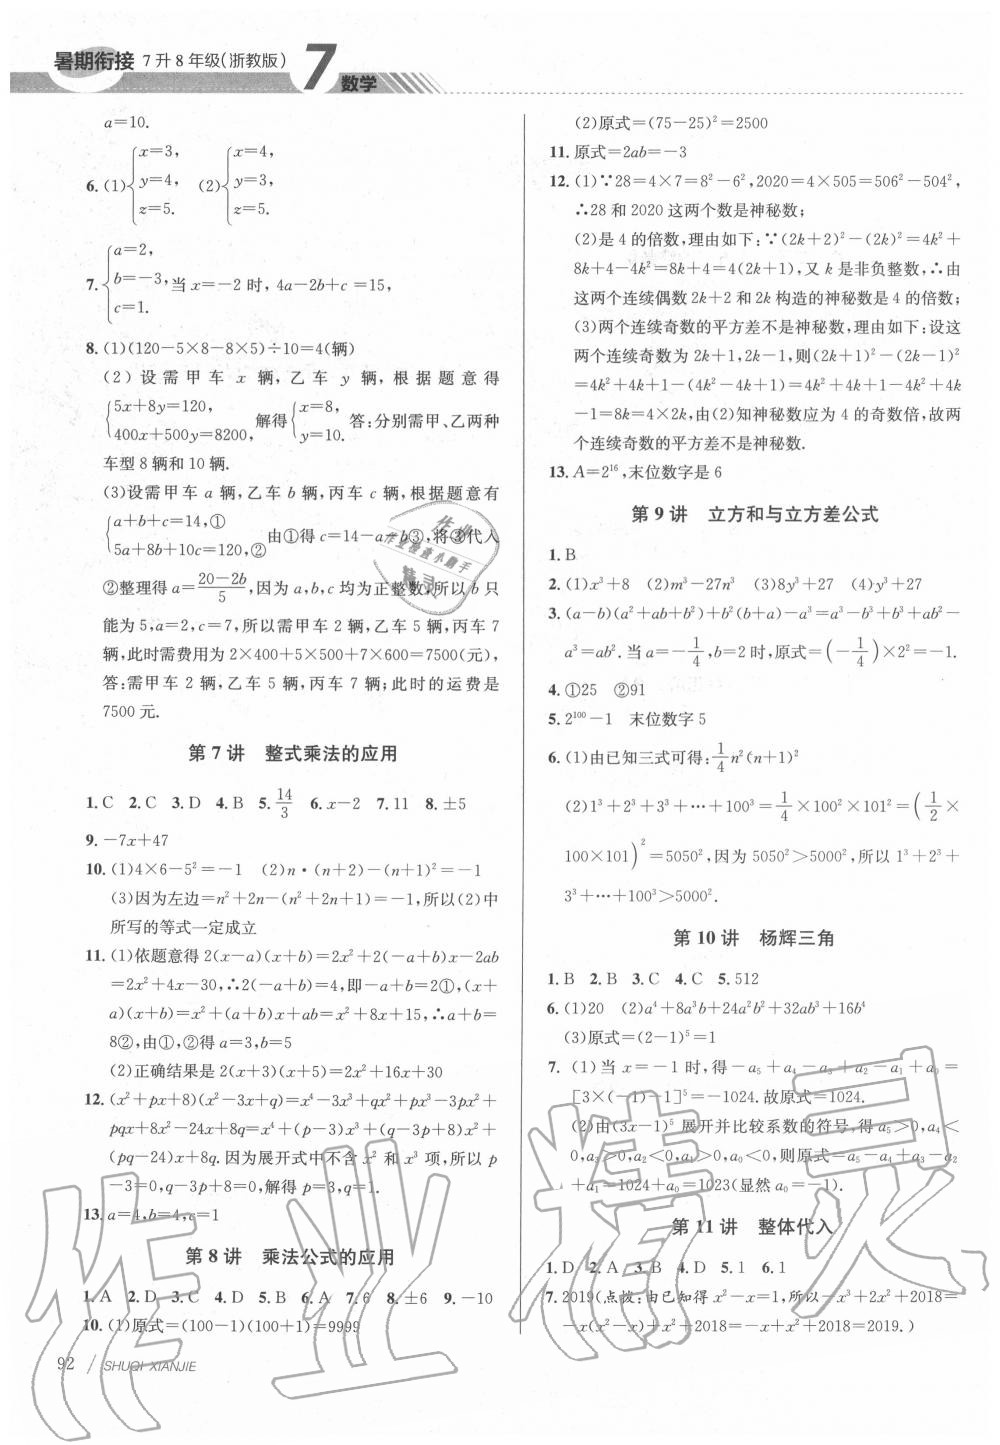 暑期衔接 7升8年级(浙教版) 7 数学
a=10.
6. (1){x=3, y=4, z=5. (2){x=4, y=3, z=5.
7. {a=2, b=-3, c=1. 当 x=-2 时, 4a-2b+c=15,
8. (1)(120-5×8-8×5)÷10=4(辆)
(2) 设需甲车 x 辆, 乙车 y 辆, 根据题意得
{5x+8y=120, 400x+500y=8200, 解得{x=8, y=10. 答:分别需甲、乙两种
车型 8 辆和 10 辆.
(3)设需甲车 a 辆,乙车 b 辆,丙车 c 辆,根据题意有
{a+b+c=14,① 5a+8b+10c=120,② 由①得 c=14-a-b③,将③代入
②整理得 a=(20-2b)/5,因为 a,b,c 均为正整数,所以 b 只
能为 5,a=2,c=7,所以需甲车 2 辆,乙车 5 辆,丙车 7
辆,此时需费用为 2×400+5×500+7×600=7500(元),
答:需甲车 2 辆,乙车 5 辆,丙车 7 辆;此时的运费是
7500 元.
第 7 讲 整式乘法的应用
1. C 2. C 3. D 4. B 5. 14/3 6. x-2 7. 11 8. ±5
9. -7x+47
10. (1)4×6-5²=-1 (2)n·(n+2)-(n+1)²=-1
(3)因为左边=n²+2n-(n²+2n+1)=-1,所以(2)中
所写的等式一定成立
11. (1)依题意得 2(x-a)(x+b)=2x²+2(-a+b)x-2ab
=2x²+4x-30,∴2(-a+b)=4,即-a+b=2①,(x+
a)(x+b)=x²+(a+b)x+ab=x²+8x+15,∴a+b=
8②,由①,②得 a=3,b=5
(2)正确结果是 2(x+3)(x+5)=2x²+16x+30
12. (x²+px+8)(x²-3x+q)=x⁴-3x³+qx²+px³-3px²+
pqx+8x²-24x+8q=x⁴+(p-3)x³+(q-3p+8)x²+
(pq-24)x+8q. 因为展开式中不含 x² 和 x³ 项,所以 p
-3=0,q-3p+8=0,解得 p=3,q=1.
13. a=4,b=4,c=1
第 8 讲 乘法公式的应用
1. A 2. D 3. C 4. D 5. B 6. A 7. 6 8. ±6 9. -10
10. (1)原式=(100-1)(100+1)=9999
92 / SHUQI XIANJIE
(2)原式=(75-25)²=2500
11. 原式=2ab=-3
12. (1)∵28=4×7=8²-6²,2020=4×505=506²-504²,
∴28 和 2020 这两个数是神秘数;
(2)是 4 的倍数,理由如下:∵(2k+2)²-(2k)²=4k²+
8k+4-4k²=8k+4=4(2k+1),又 k 是非负整数,∴由
这两个连续偶数 2k+2 和 2k 构造的神秘数是 4 的倍数;
(3)两个连续奇数的平方差不是神秘数,理由如下:设这
两个连续奇数为 2k+1,2k-1,则(2k+1)²-(2k-1)²
=4k²+4k+1-(4k²-4k+1)=4k²+4k+1-4k²+4k
-1=8k=4×2k,由(2)知神秘数应为 4 的奇数倍,故两
个连续奇数的平方差不是神秘数.
13. A=2¹⁶,末位数字是 6
第 9 讲 立方和与立方差公式
1. B
2. (1)x³+8 (2)m³-27n³ (3)8y³+27 (4)y³+27
3. (a-b)(a²+ab+b²)+b²(b+a)-a³=a³-b³+b³+ab²-
a³=ab². 当 a=-1/4,b=2 时,原式=(-1/4)×2²=-1.
4. ①25 ②91
5. 2¹⁰⁰-1 末位数字 5
6. (1)由已知三式可得:1/4 n²(n+1)²
(2)1³+2³+3³+…+100³=1/4×100²×101²=(1/2×
100×101)²=5050²,因为 5050²>5000²,所以 1³+2³+
3³+…+100³>5000².
第 10 讲 杨辉三角
1. B 2. B 3. C 4. C 5. 512
6. (1)20 (2)a⁴+8a³b+24a²b²+32ab³+16b⁴
(3)原式=(2-1)⁵=1
7. (1) 当 x=-1 时,得 -a₅+a₄-a₃+a₂-a₁+a₀=
[3×(-1)-1]⁵=-1024. 故原式=1024.
(2)由(3x-1)⁵ 展开并比较系数的符号,得 a₅>0,a₄<
0,a₃>0,a₂<0,a₁>0,a₀<0,则原式=a₅-a₄+a₃-a₂
+a₁=1024+a₀=1023(显然 a₀=-1).
第 11 讲 整体代入
1. D 2. A 3. B 4. D 5. 1 6. 1
7. 2019(点拨:由已知得 x²-x=1,所以-x³+2x²+2018=
-x(x²-x)+x²+2018=-x+x²+2018=2019.)
作业精灵
作业
作业检查小助手
精灵